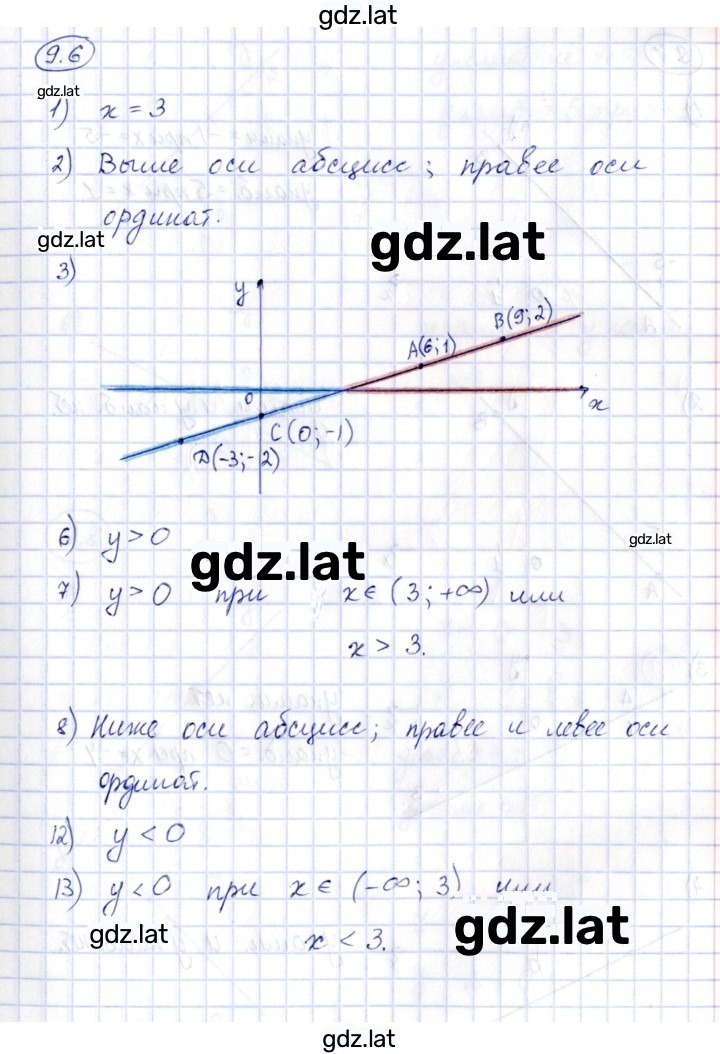 gdz.lat
9.6
gdz.lat
1) x = 3
2) Выше оси абсцисс; правее оси
ординат.
gdz.lat
gdz.lat
3)
y
B(9; 2)
A(6; 1)
0
x
C(0; -1)
D(-3; -2)
6) y > 0
gdz.lat
gdz.lat
7) y > 0 при x ∈ (3; +∞) или
x > 3.
8) Ниже оси абсцисс; правее и левее оси
ординат.
12) y < 0
13) y < 0 при x ∈ (-∞; 3) или
gdz.lat
gdz.lat
x < 3.
gdz.lat